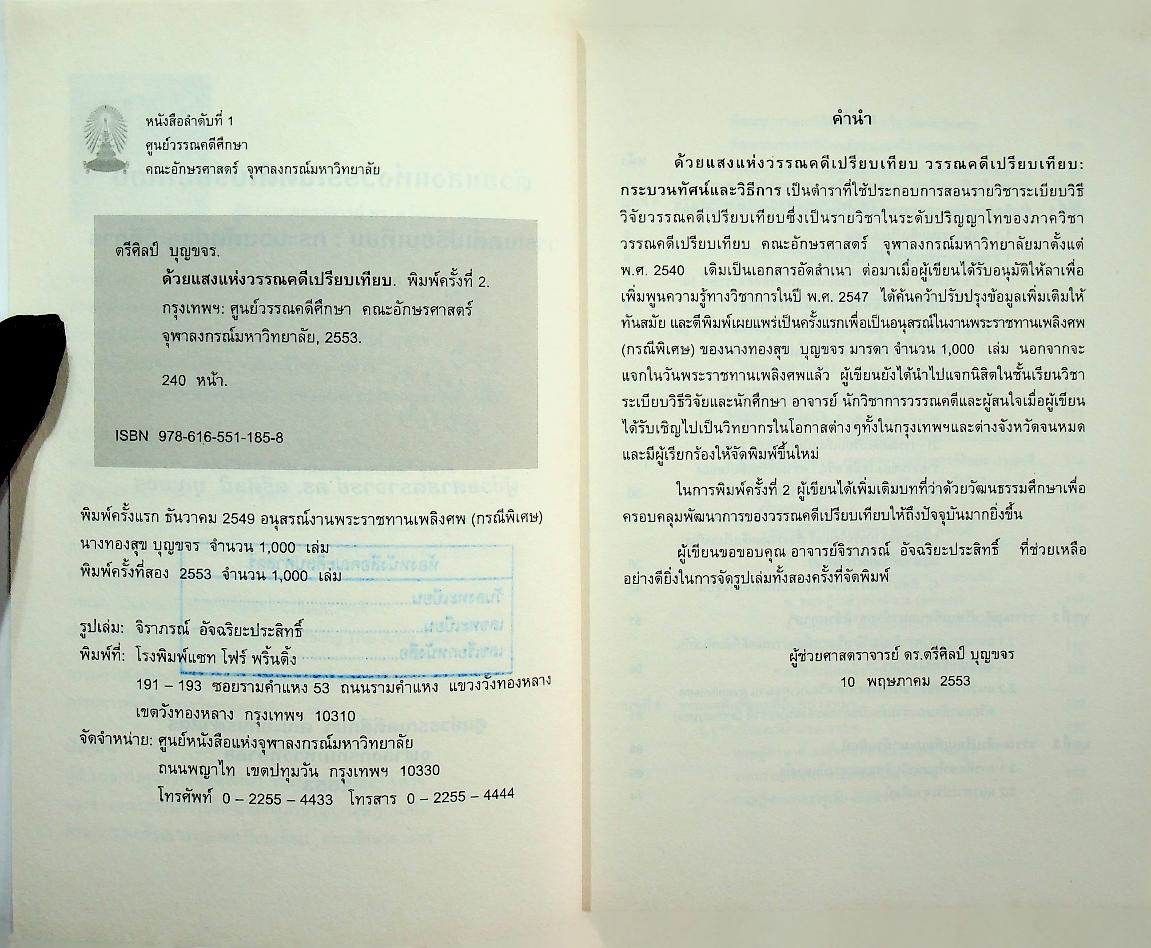 หนังสือลำดับที่ 1
ศูนย์วรรณคดีศึกษา
คณะอักษรศาสตร์ จุฬาลงกรณ์มหาวิทยาลัย
ตรีศิลป์ บุญขจร.
ด้วยแสงแห่งวรรณคดีเปรียบเทียบ. พิมพ์ครั้งที่ 2.
กรุงเทพฯ: ศูนย์วรรณคดีศึกษา คณะอักษรศาสตร์
จุฬาลงกรณ์มหาวิทยาลัย, 2553.
240 หน้า.
ISBN 978-616-551-185-8
พิมพ์ครั้งแรก ธันวาคม 2549 อนุสรณ์งานพระราชทานเพลิงศพ (กรณีพิเศษ)
นางทองสุข บุญขจร จำนวน 1,000 เล่ม
พิมพ์ครั้งที่สอง 2553 จำนวน 1,000 เล่ม
รูปเล่ม: จิราภรณ์ อัจฉริยะประสิทธิ์
พิมพ์ที่: โรงพิมพ์แซท โฟร์ พริ้นติ้ง
191 – 193 ซอยรามคำแหง 53 ถนนรามคำแหง แขวงวังทองหลาง
เขตวังทองหลาง กรุงเทพฯ 10310
จัดจำหน่าย: ศูนย์หนังสือแห่งจุฬาลงกรณ์มหาวิทยาลัย
ถนนพญาไท เขตปทุมวัน กรุงเทพฯ 10330
โทรศัพท์ 0 – 2255 – 4433 โทรสาร 0 – 2255 – 4444
คำนำ
ด้วยแสงแห่งวรรณคดีเปรียบเทียบ วรรณคดีเปรียบเทียบ:
กระบวนทัศน์และวิธีการ เป็นตำราที่ใช้ประกอบการสอนรายวิชาระเบียบวิธี
วิจัยวรรณคดีเปรียบเทียบซึ่งเป็นรายวิชาในระดับปริญญาโทของภาควิชา
วรรณคดีเปรียบเทียบ คณะอักษรศาสตร์ จุฬาลงกรณ์มหาวิทยาลัยมาตั้งแต่
พ.ศ. 2540 เดิมเป็นเอกสารอัดสำเนา ต่อมาเมื่อผู้เขียนได้รับอนุมัติให้ลาเพื่อ
เพิ่มพูนความรู้ทางวิชาการในปี พ.ศ. 2547 ได้ค้นคว้าปรับปรุงข้อมูลเพิ่มเติมให้
ทันสมัย และตีพิมพ์เผยแพร่เป็นครั้งแรกเพื่อเป็นอนุสรณ์ในงานพระราชทานเพลิงศพ
(กรณีพิเศษ) ของนางทองสุข บุญขจร มารดา จำนวน 1,000 เล่ม นอกจากจะ
แจกในวันพระราชทานเพลิงศพแล้ว ผู้เขียนยังได้นำไปแจกนิสิตในชั้นเรียนวิชา
ระเบียบวิธีวิจัยและนักศึกษา อาจารย์ นักวิชาการวรรณคดีและผู้สนใจเมื่อผู้เขียน
ได้รับเชิญไปเป็นวิทยากรในโอกาสต่างๆทั้งในกรุงเทพฯและต่างจังหวัดจนหมด
และมีผู้เรียกร้องให้จัดพิมพ์ขึ้นใหม่
ในการพิมพ์ครั้งที่ 2 ผู้เขียนได้เพิ่มเติมบทที่ว่าด้วยวัฒนธรรมศึกษาเพื่อ
ครอบคลุมพัฒนาการของวรรณคดีเปรียบเทียบให้ถึงปัจจุบันมากยิ่งขึ้น
ผู้เขียนขอขอบคุณ อาจารย์จิราภรณ์ อัจฉริยะประสิทธิ์ ที่ช่วยเหลือ
อย่างดียิ่งในการจัดรูปเล่มทั้งสองครั้งที่จัดพิมพ์
ผู้ช่วยศาสตราจารย์ ดร.ตรีศิลป์ บุญขจร
10 พฤษภาคม 2553